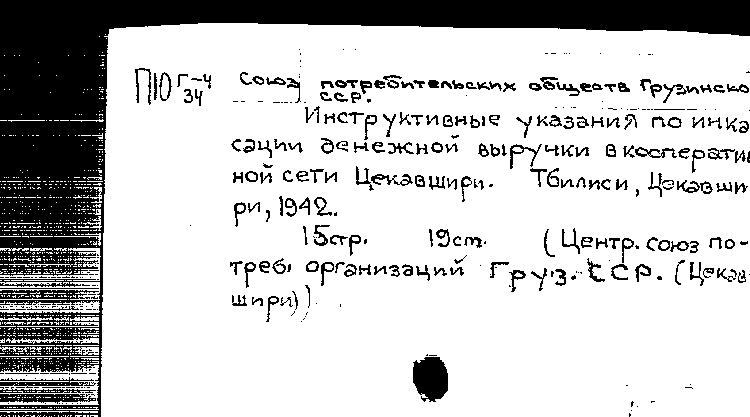 П10 Г-4 Союз потребительских обществ Грузинско
34 ССР.
Инструктивные указания по инка
сации денежной выручки в кооператив
ной сети Цекавшири. Тбилиси, Цекавши
ри, 1942.
15стр. 19cm. (Центр. союз по-
треб. организаций Груз. ССР. (Цекав-
шири))